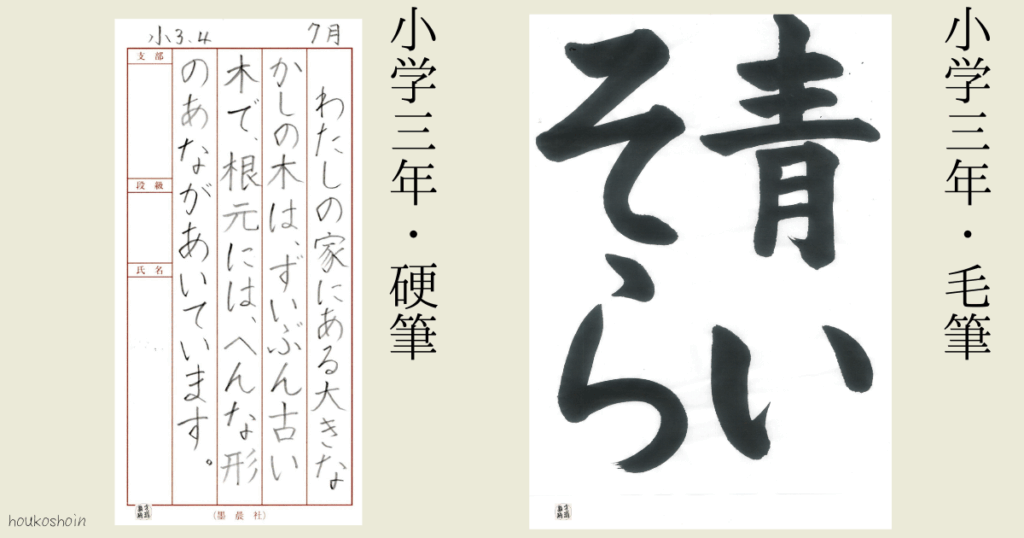 小学三年・毛筆
青い
そら
小学三年・硬筆
7月
小3.4
わたしの家にある大きな
かしの木は、ずいぶん古い
木で、根元には、へんな形
のあながあいています。
支部
段級
氏名
(墨晨社)
houkoshoin